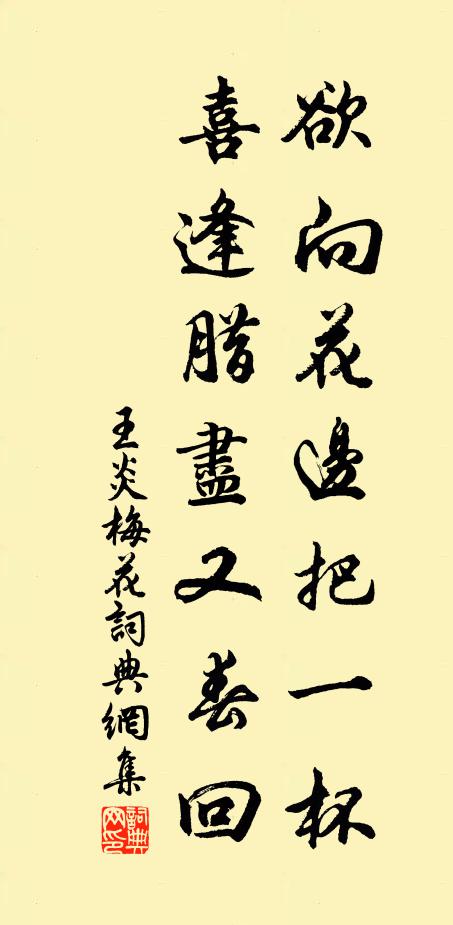 欲向花邊把一杯
喜逢腊盡又春回
王炎梅花詞典網集
詞典网印